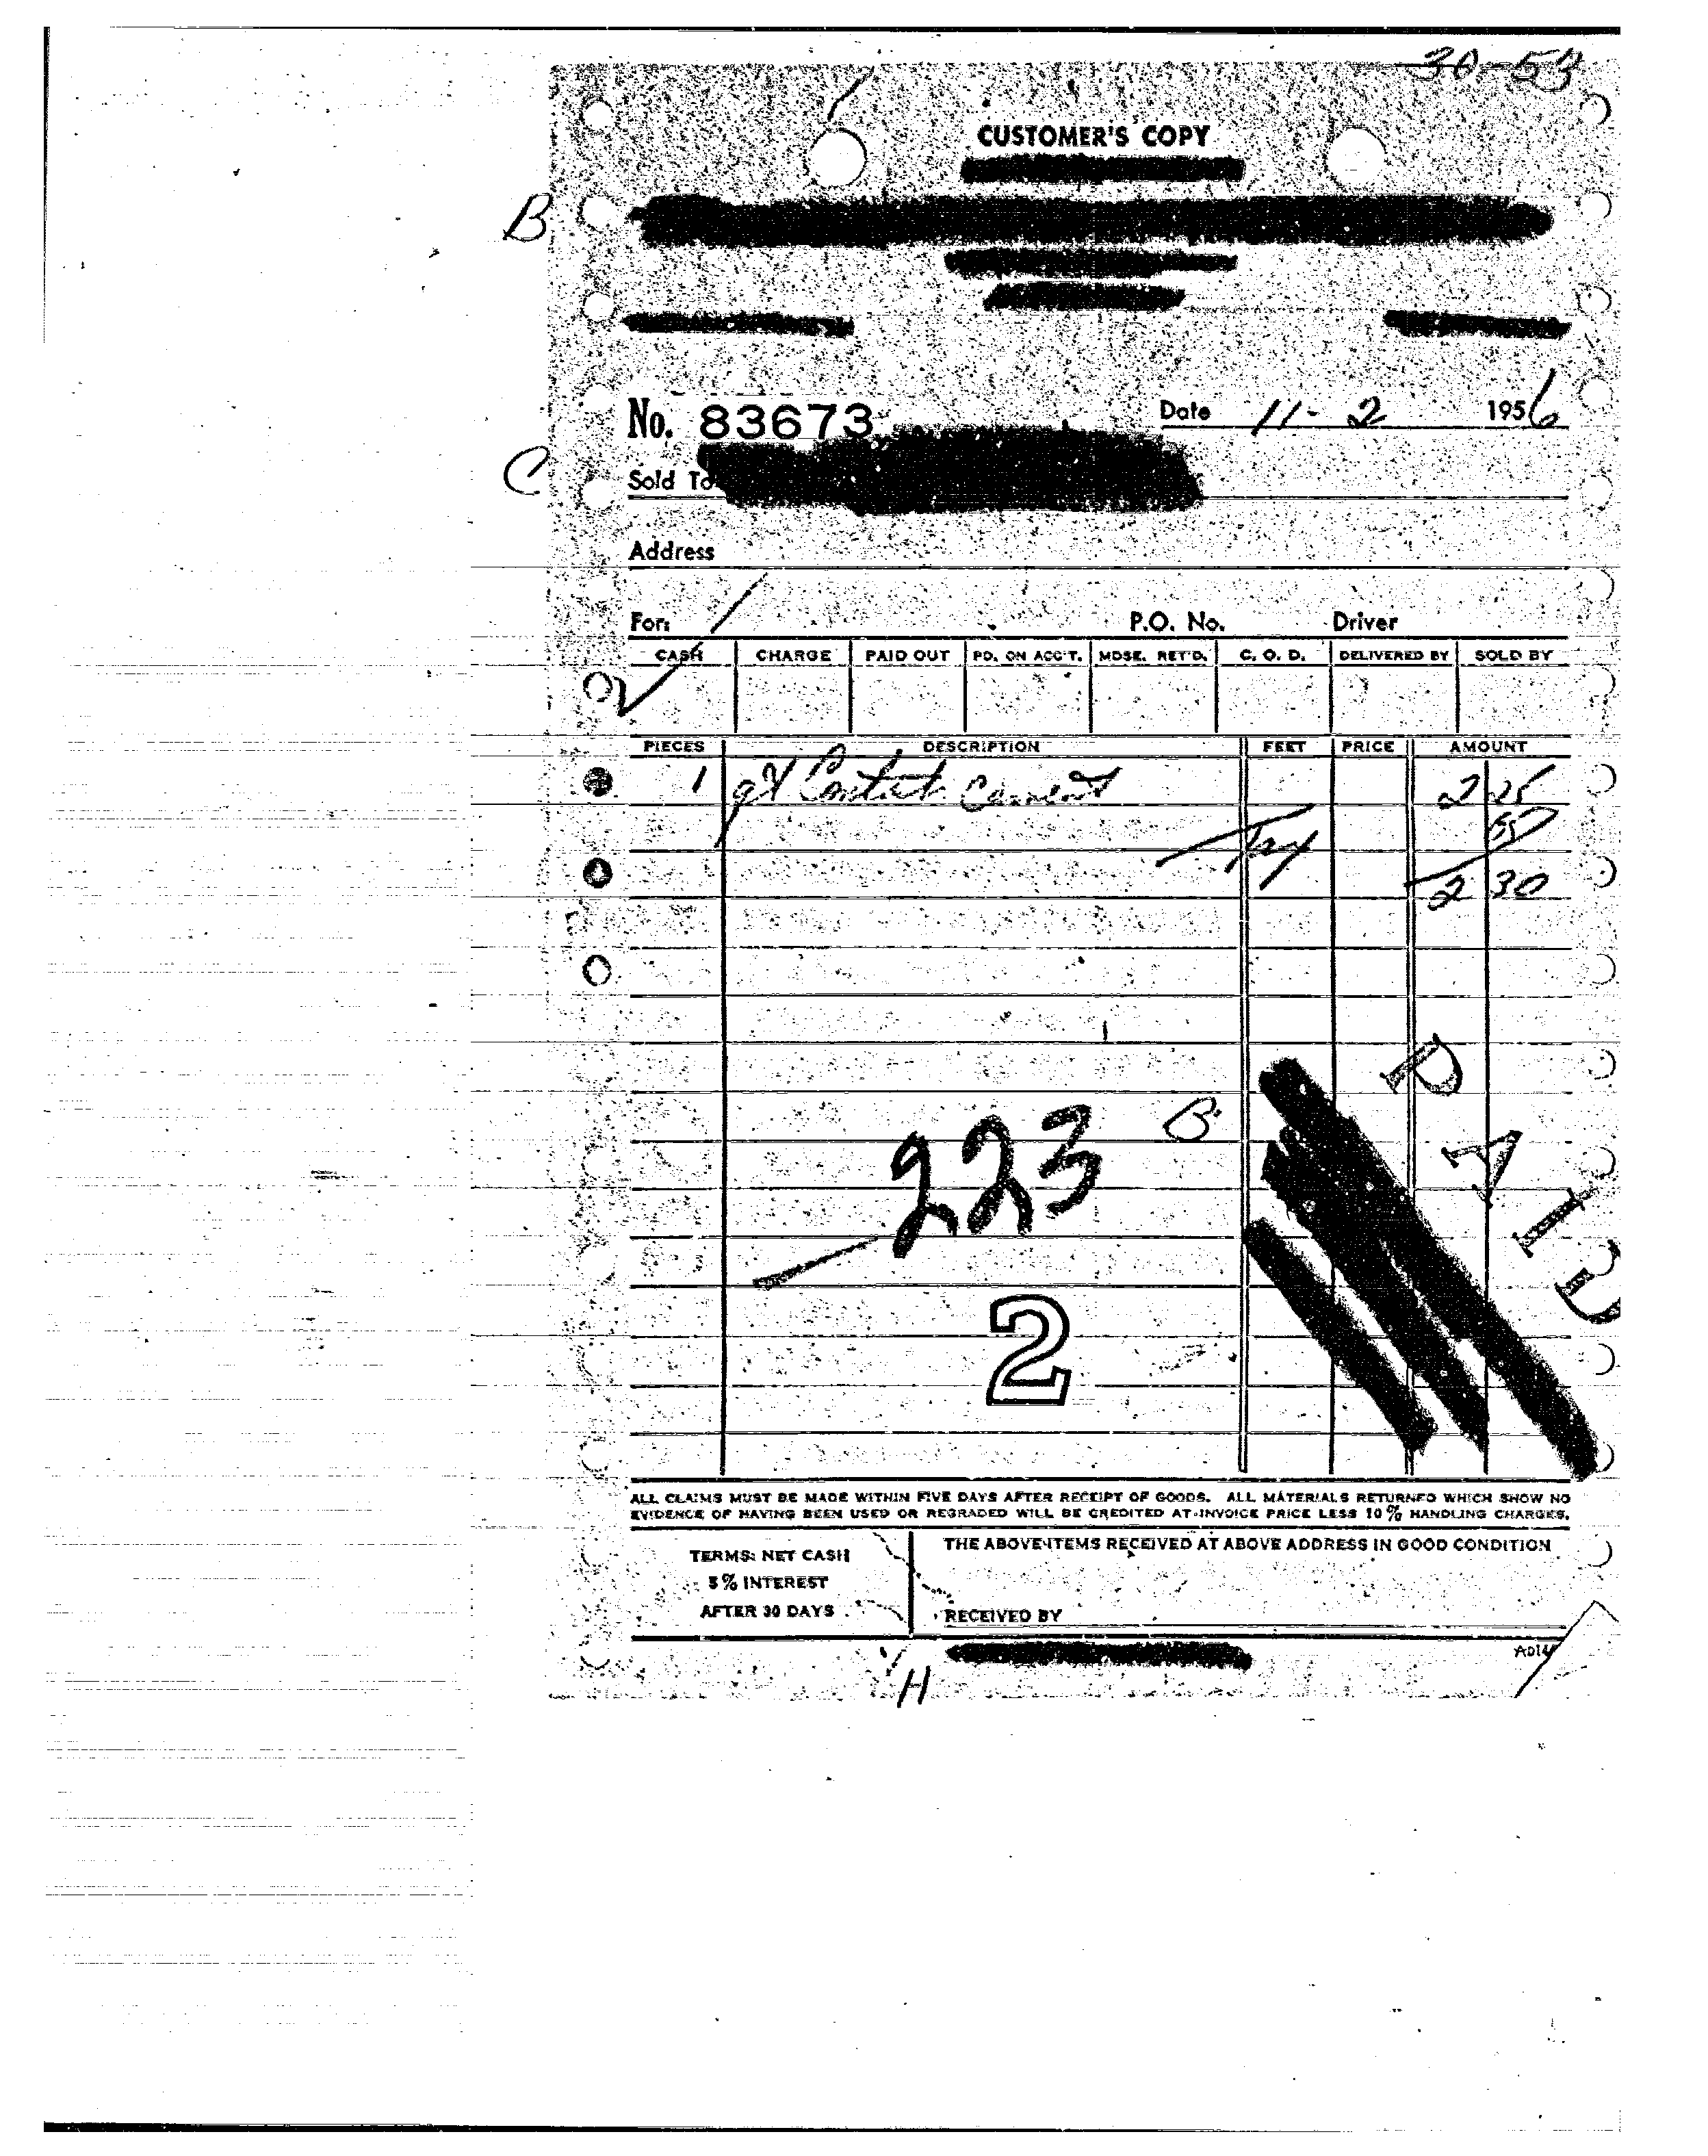 30-53
CUSTOMER'S COPY
B
No. 83673 Date 11-2 1956
C
Sold To
Address
For: P.O. No. Driver
CASH CHARGE PAID OUT PD. ON ACC'T. MDSE. RET'D. C. O. D. DELIVERED BY SOLD BY
PIECES DESCRIPTION FEET PRICE AMOUNT
1 qt Contact Cement 2 25
Tax 05
2 30
B
223
PAID
2
ALL CLAIMS MUST BE MADE WITHIN FIVE DAYS AFTER RECEIPT OF GOODS. ALL MATERIALS RETURNED WHICH SHOW NO
EVIDENCE OF HAVING BEEN USED OR REGRADED WILL BE CREDITED AT INVOICE PRICE LESS 10% HANDLING CHARGES.
TERMS: NET CASH
5% INTEREST
AFTER 30 DAYS
THE ABOVE ITEMS RECEIVED AT ABOVE ADDRESS IN GOOD CONDITION
RECEIVED BY
H